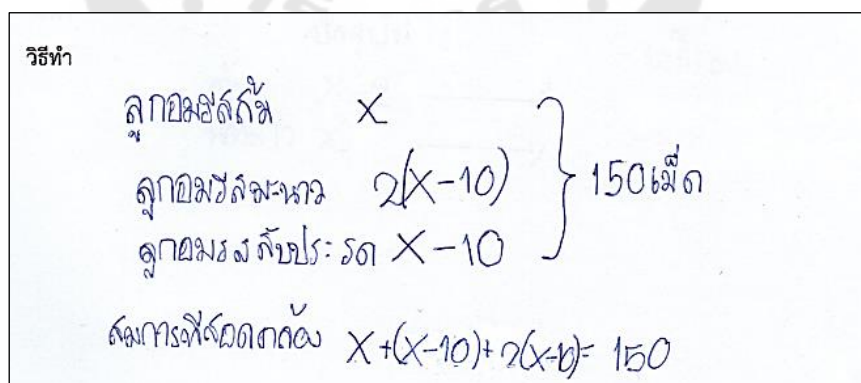 วิธีทำ
ลูกอมรสส้ม X
ลูกอมรสมะนาว 2(X-10) } 150 เม็ด
ลูกอมรสสับประรด X-10
สมการที่สอดคล้อง X+(X-10)+2(X-10)= 150